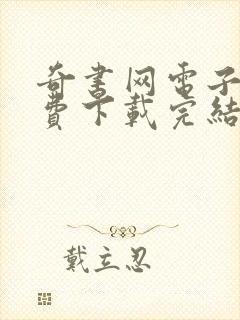 奇書网電子
費下載完結
戴立忍